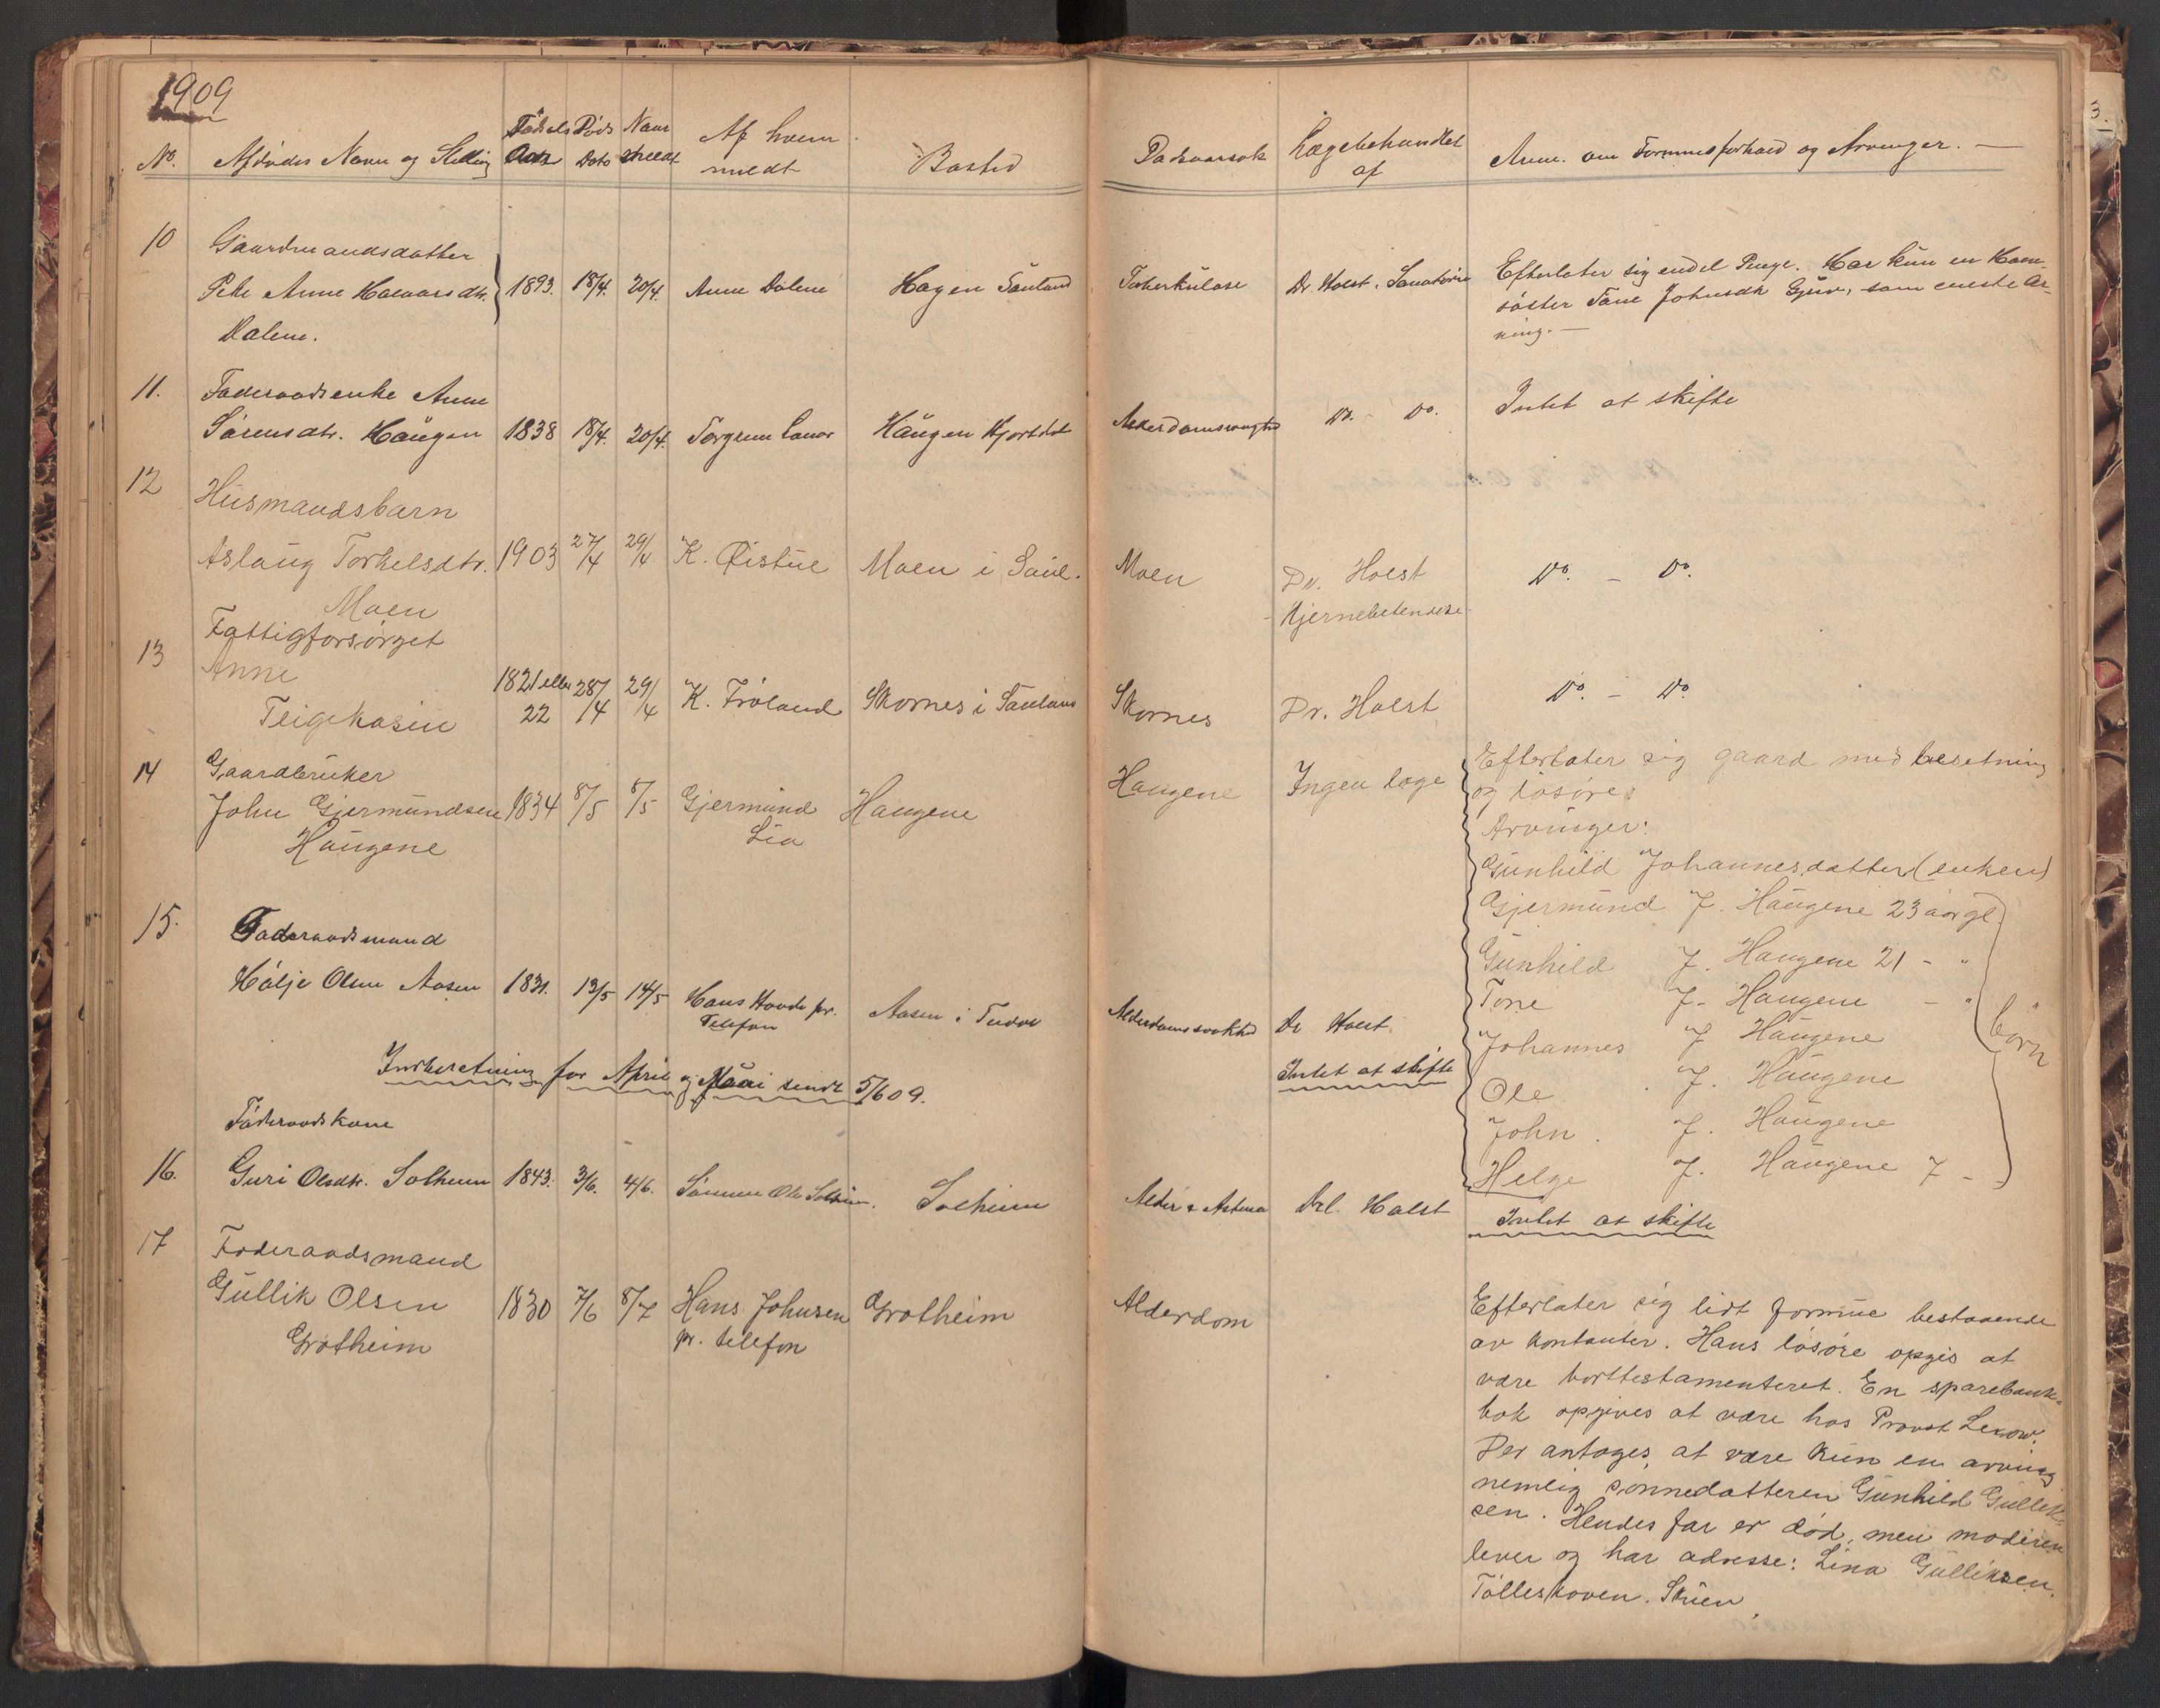 1909
No. Afdødes Navn og Stilling Fødsels Aar Døds Dato Naar meldt Af hvem meldt Bosted Dødsaarsak Lægebehandlet af Anm. om Formuesforhold og Arvinger. —
10 Gaardmandsdatter
Anne Halvorsdtr. 1893. 18/4. 20/4. Anne Dalene Hagen Sauland Tuberkulose Dr. Holst, Sanatorie
Dalene.
Efterlater sig endel Penge. Har kun en Halv
søster Tone Johnsdtr Gjuv, som eneste Ar-
ving. —
11. Føderaadsenke Anne
Sørensdtr. Haugen 1838 18/4. 20/4. Torgrim Haugen Hjortdal Alderdomssvaghed Do. - Do. Intet at skifte
12 Husmandsbarn
Aslaug Torkelsdtr. 1903 27/4 29/4 K. Øistul Moen i Saul. Moen Dr. Holst Do. - Do.
Moen Hjernebetendelse
13 Fattigforsørget
Anne 1821 eller 28/4 29/4 K. Frøland Skornes i Sauland Skornes Dr. Holst Do. - Do.
Teigekasin 22
14 Gaardbruker
John Gjermundsen 1834 8/5 8/5 Gjermund Haugene Haugene Ingen læge
Haugene Lia
Efterlater sig gaard med besetning
og løsøre.
Arvinger:
Gunhild Johannesdatter (enken)
Gjermund J. Haugene 23 aar gl
Gunhild J. Haugene 21 - "
Tone J. Haugene - " "
Johannes J Haugene børn
Ole J. Haugene
John J. Haugene
Helge J. Haugene 7 -
15. Føderaadsmand
Hølje Olsen Aasen 1831. 13/5 14/5 Hans Hovde pr. Aasen i Tuddal Alderdomssvakhed Dr Holst.
Telefon
Intet at skifte
Indberetning for April og Mai sendt 5/6 09.
Føderaadskone
16. Guri Olsdtr. Solheim 1843. 3/6. 4/6. Sønnen Ole Solheim. Solheim Alder & Astma Dr. Holst Intet at skifte
17 Føderaadsmand
Gullik Olsen 1830 7/6 8/7 Hans Johnsen Grotheim Alderdom
Grotheim pr. telefon
Efterlater sig lidt formue bestaaende
av kontanter. Hans løsøre opgis at
være borttestamenteret. En sparebank-
bok opgives at være hos Provst Lexow.
Der antages at være kun en arving
nemlig sønnedatteren Gunhild Gullik-
sen. Hendes far er død, men moderen
lever og har adresse: Lina Gulliksen.
Tolleskoven. Skien.